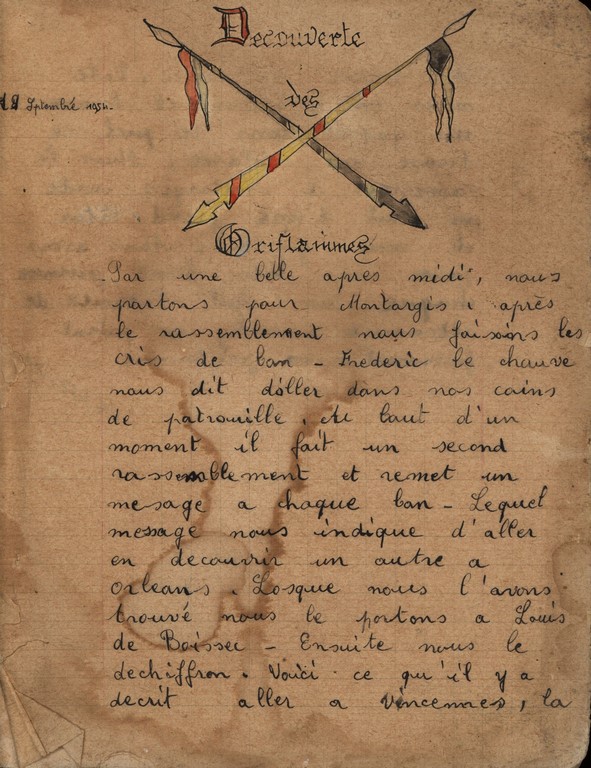 Decouverte
des
Oriflammes
18 Septembre 1954.
Par une belle apres midi, nous
partons pour Montargis. après
le rassemblement nous faisons les
cris de ban - Frederic le chauve
nous dit d'oller dans nos coins
de patrouille. Au bout d'un
moment il fait un second
rassemblement et remet un
mesage a chaque ban - Lequel
message nous indique d'aller
en decouvrir un autre a
Orleans. Losque nous l'avons
trouvé nous le portons a Louis
de Boissec - Ensuite nous le
dechiffron. Voici ce qu'il y a
decrit aller a vincennes, la